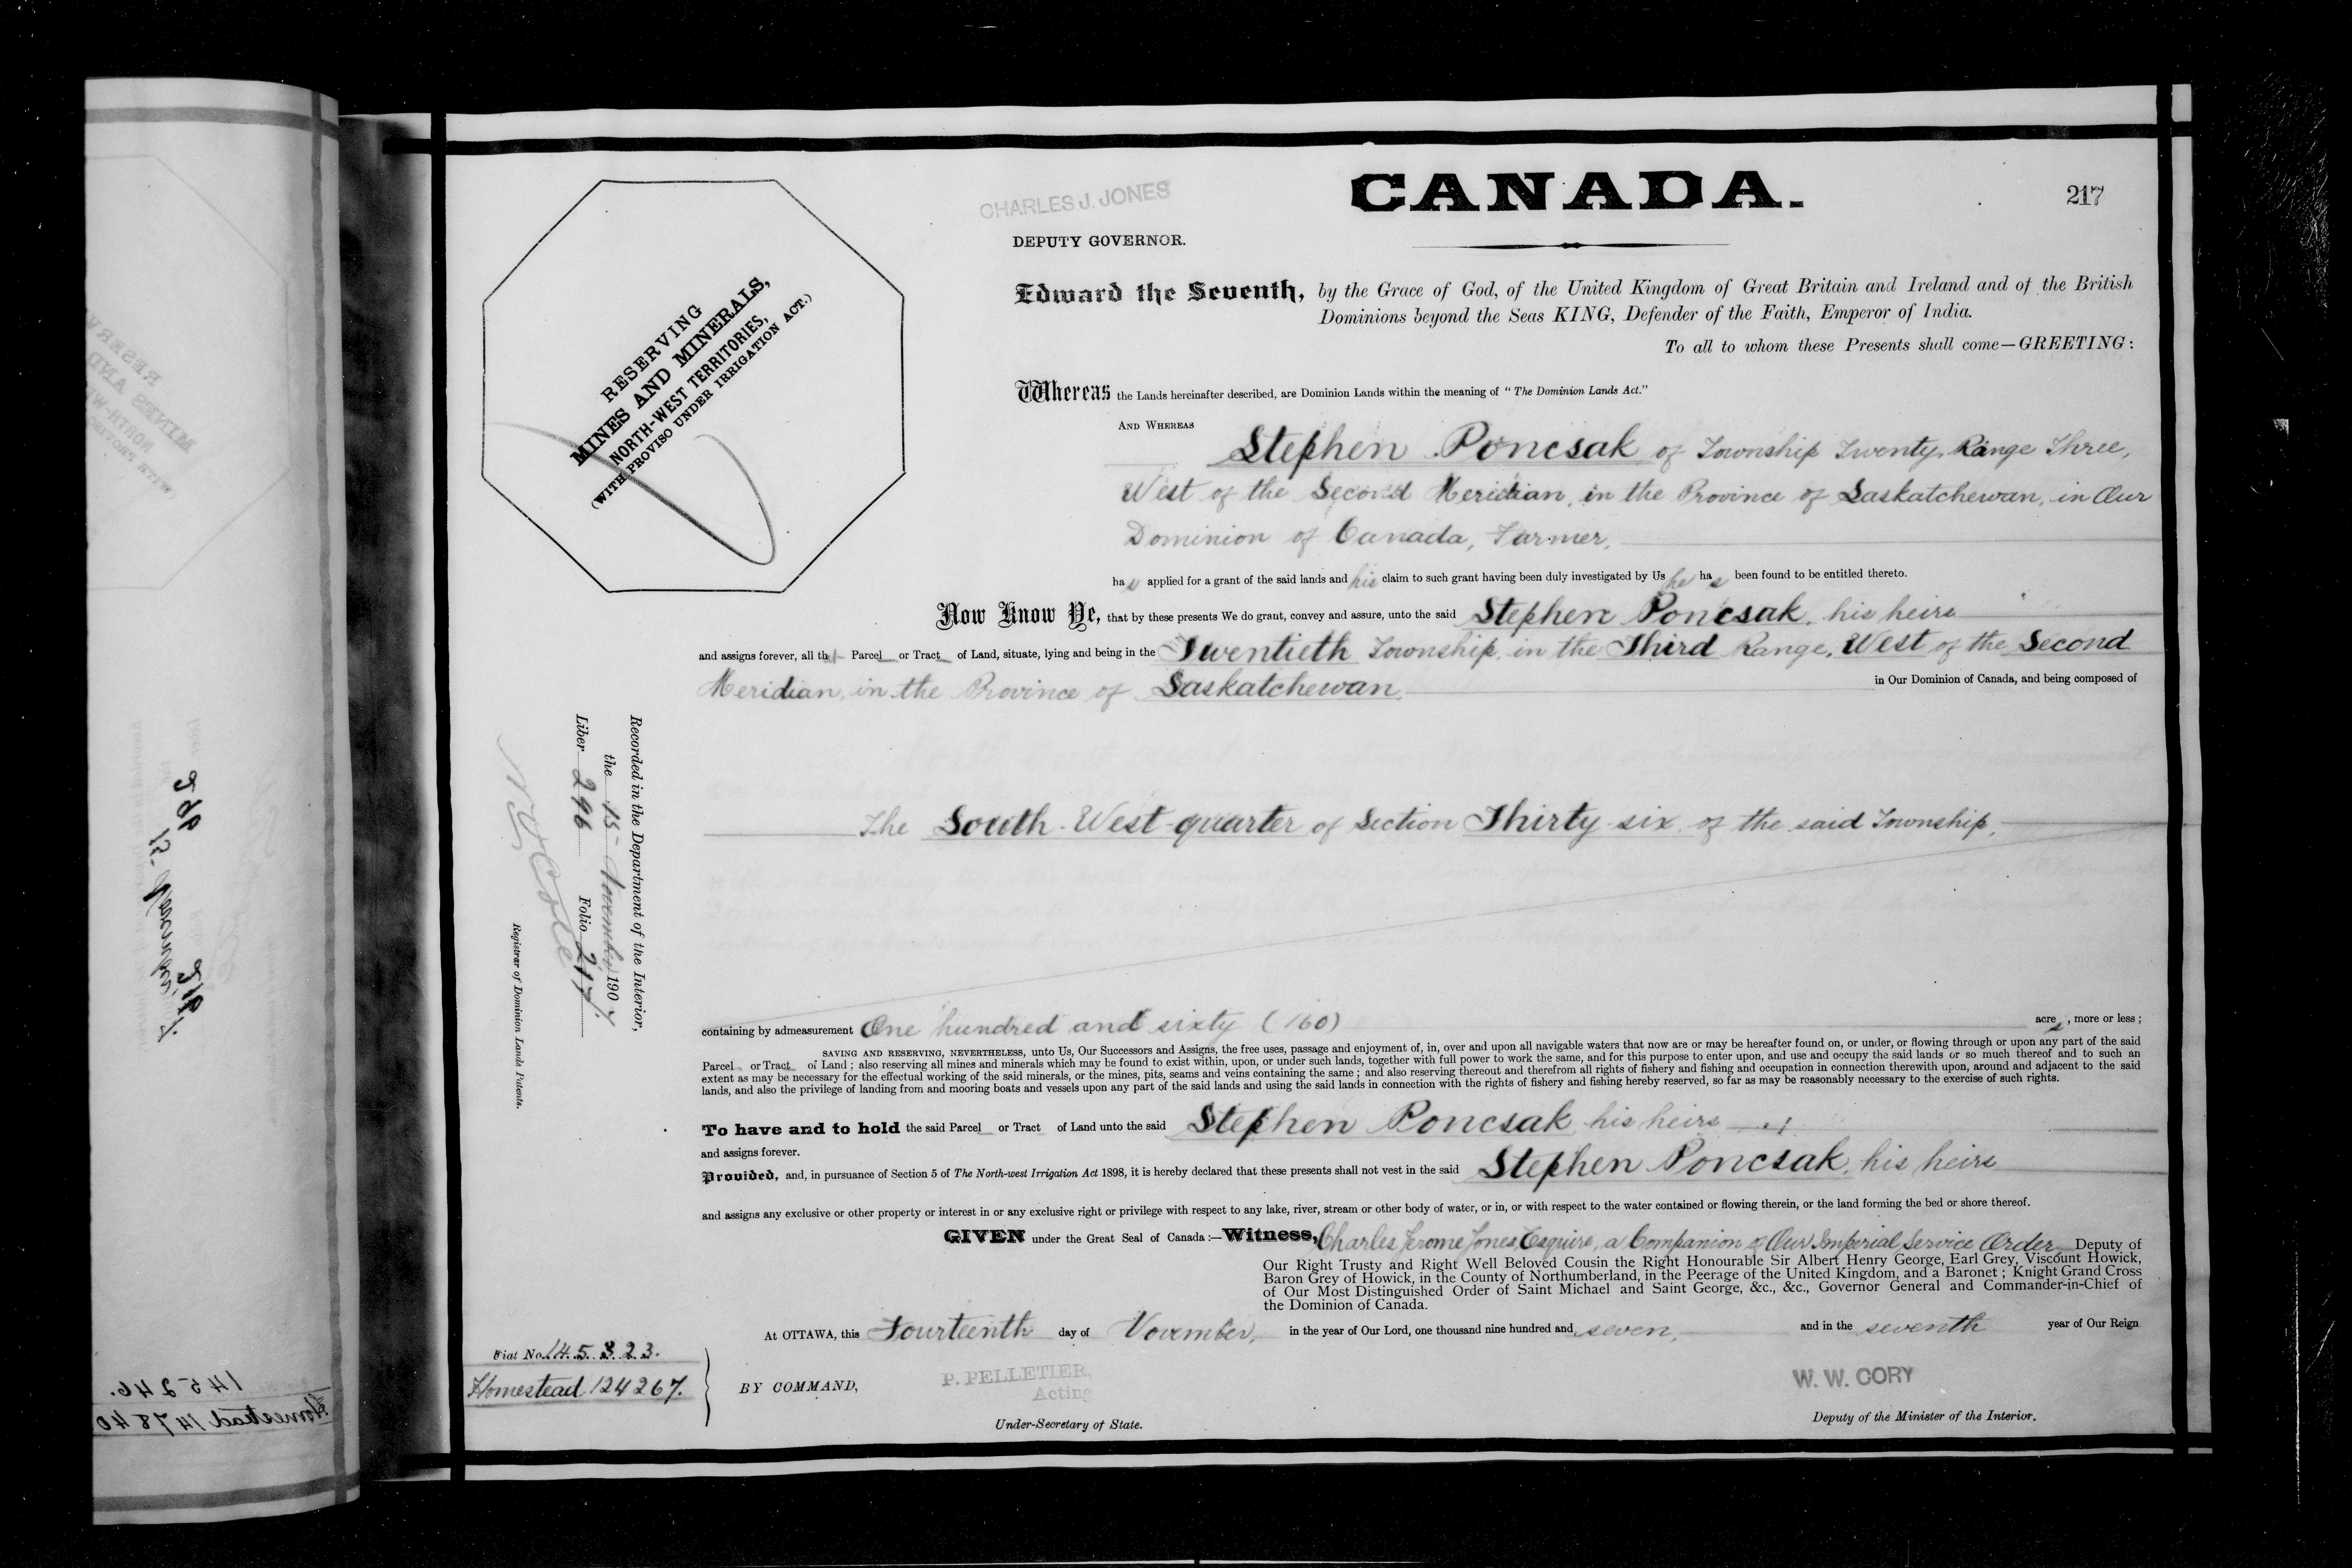 CANADA.
217
CHARLES J. JONES
DEPUTY GOVERNOR.
RESERVING
MINES AND MINERALS,
NORTH-WEST TERRITORIES,
(WITH PROVISO UNDER IRRIGATION ACT.)
Edward the Seventh, by the Grace of God, of the United Kingdom of Great Britain and Ireland and of the British
Dominions beyond the Seas KING, Defender of the Faith, Emperor of India.
To all to whom these Presents shall come—GREETING:
Whereas the Lands hereinafter described, are Dominion Lands within the meaning of "The Dominion Lands Act."
AND WHEREAS
Stephen Poncsak of Township Twenty, Range Three,
West of the Second Meridian, in the Province of Saskatchewan, in Our
Dominion of Canada, Farmer,
has applied for a grant of the said lands and his claim to such grant having been duly investigated by Us he has been found to be entitled thereto.
Now Know Ye, that by these presents We do grant, convey and assure, unto the said Stephen Poncsak, his heirs
and assigns forever, all that Parcel or Tract of Land, situate, lying and being in the Twentieth Township, in the Third Range, West of the Second
Meridian, in the Province of Saskatchewan, in Our Dominion of Canada, and being composed of
The South-West-quarter of Section Thirty-six, of the said Township,
containing by admeasurement One hundred and sixty (160) acres, more or less;
SAVING AND RESERVING, NEVERTHELESS, unto Us, Our Successors and Assigns, the free uses, passage and enjoyment of, in, over and upon all navigable waters that now are or may be hereafter found on, or under, or flowing through or upon any part of the said
Parcel or Tract of Land; also reserving all mines and minerals which may be found to exist within, upon, or under such lands, together with full power to work the same, and for this purpose to enter upon, and use and occupy the said lands or so much thereof and to such an
extent as may be necessary for the effectual working of the said minerals, or the mines, pits, seams and veins containing the same; and also reserving thereout and therefrom all rights of fishery and fishing and occupation in connection therewith upon, around and adjacent to the said
lands, and also the privilege of landing from and mooring boats and vessels upon any part of the said lands and using the said lands in connection with the rights of fishery and fishing hereby reserved, so far as may be reasonably necessary to the exercise of such rights.
To have and to hold the said Parcel or Tract of Land unto the said Stephen Poncsak his heirs
and assigns forever.
Provided, and, in pursuance of Section 5 of The North-west Irrigation Act 1898, it is hereby declared that these presents shall not vest in the said Stephen Poncsak, his heirs
and assigns any exclusive or other property or interest in or any exclusive right or privilege with respect to any lake, river, stream or other body of water, or in, or with respect to the water contained or flowing therein, or the land forming the bed or shore thereof.
GIVEN under the Great Seal of Canada:—Witness, Charles Jerome Jones, Esquire, a Companion of Our Imperial Service Order, Deputy of
Our Right Trusty and Right Well Beloved Cousin the Right Honourable Sir Albert Henry George, Earl Grey, Viscount Howick,
Baron Grey of Howick, in the County of Northumberland, in the Peerage of the United Kingdom, and a Baronet; Knight Grand Cross
of Our Most Distinguished Order of Saint Michael and Saint George, &c., &c., Governor General and Commander-in-Chief of
the Dominion of Canada.
At OTTAWA, this Fourteenth day of November, in the year of Our Lord, one thousand nine hundred and seven, and in the seventh year of Our Reign
BY COMMAND,
P. PELLETIER,
Acting
Under-Secretary of State.
W. W. CORY
Deputy of the Minister of the Interior.
Fiat No. 145323.
Homestead 124267.
Recorded in the Department of the Interior,
the 15 November 1907
Liber 296 Folio 217.
Registrar of Dominion Lands Patents.
296
217.
145246.
Homestead 147840